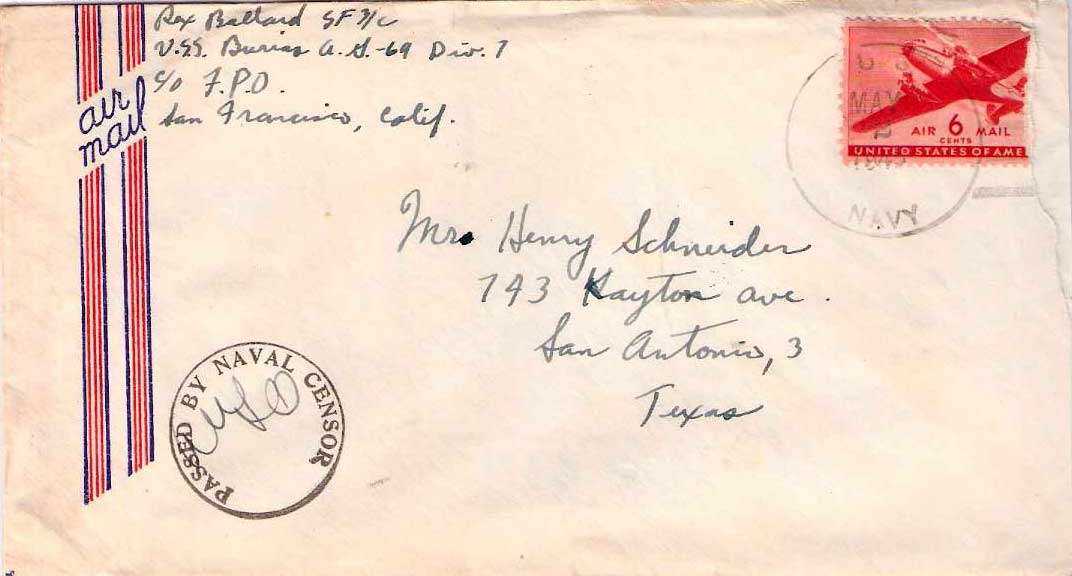 Rex Ballard SF 3/c
U.S.S. Burias A.G.-69 Div. 7
c/o F.P.O.
San Francisco, Calif.
air
mail
MAY
2
NAVY
AIR 6 MAIL
CENTS
UNITED STATES OF AME
Mrs Henry Schneider
743 Kayton ave.
San Antonio, 3
Texas
PASSED BY NAVAL CENSOR